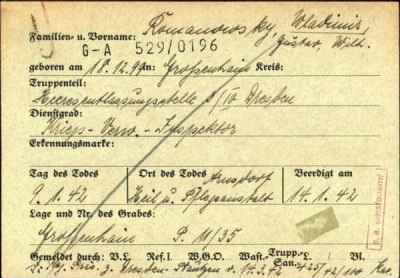 Familien- u. Vorname: Romanowsky, Wladimir,
Gustav, Wilh.
G-A 529/0196
geboren am 18.12.99 in Großenhain Kreis:
Truppenteil:
Heeresentlassungsstelle 5/IV Dresden
Dienstgrad:
Kriegs-Verw.-Inspektor
Erkennungsmarke:
Tag des Todes Ort des Todes Arnsdorf Beerdigt am
9.1.42 Heil u. Pflegeanstalt 14.1.42
Lage und Nr. des Grabes:
Großenhain P. 11/35
Gemeldet durch: V.L. Ref.I. W.G.O. Wast.- Trupp.- San.- L. Bl.
Dresden v. 14.3.42